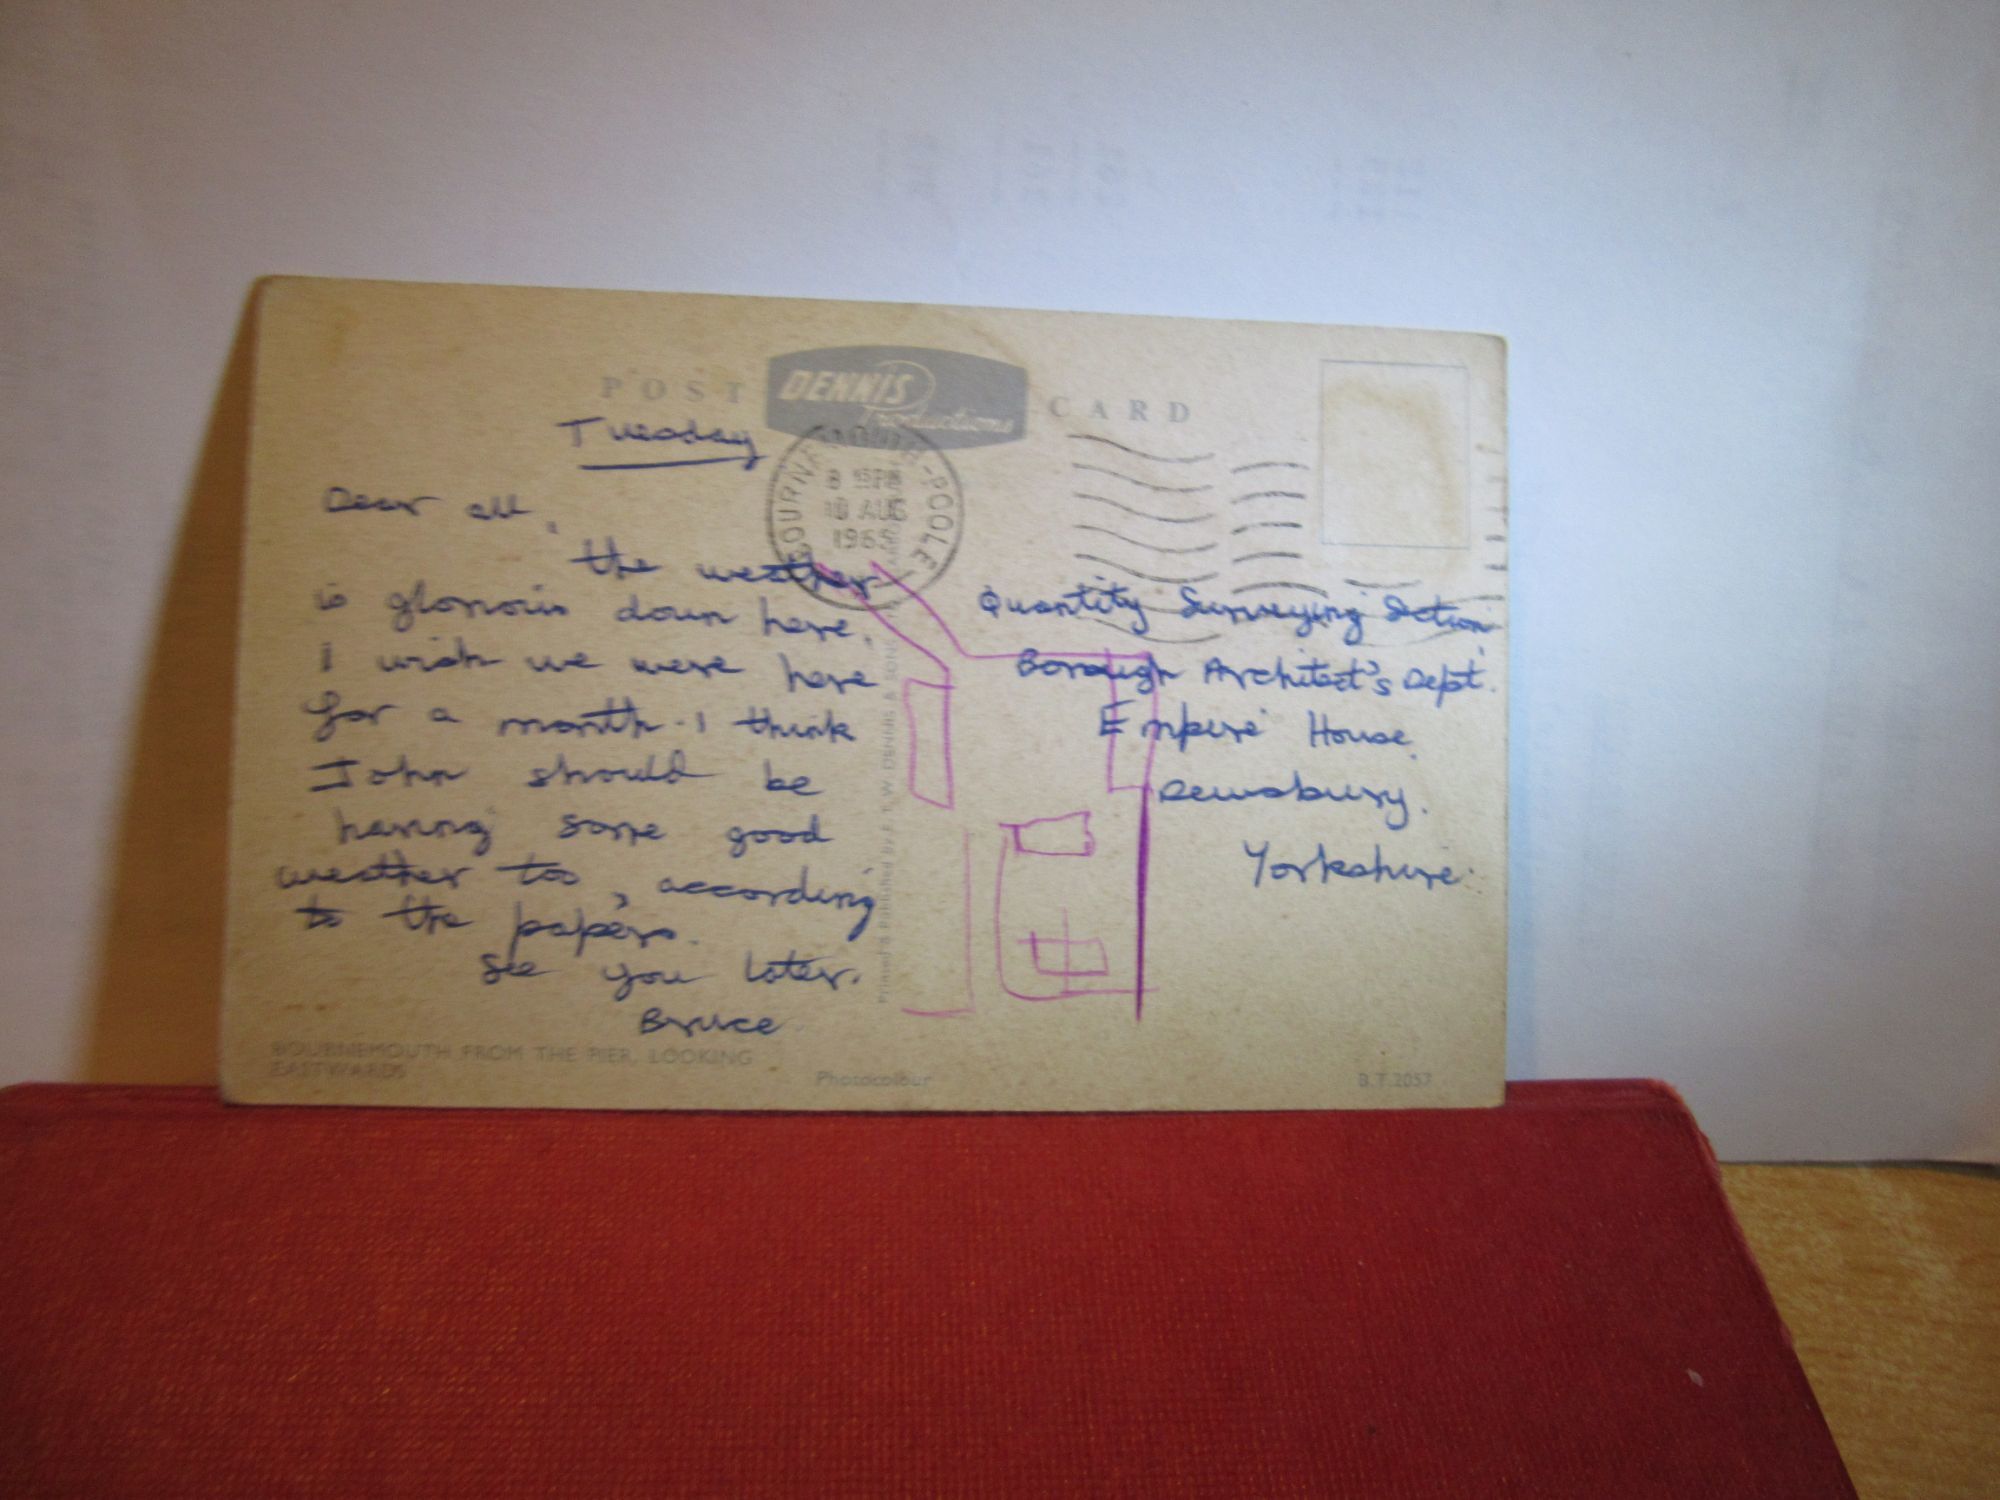 POST CARD
DENNIS
Productions
Tuesday
Dear all,
the weather
is glorious down here.
I wish we were here
for a month. I think
John should be
having some good
weather too, according
to the papers.
See you later.
Bruce
BOURNEMOUTH-POOLE
PM
10 AUG
1965
Quantity Surveying Section,
Borough Architect's Dept.
Empire House.
Dewsbury.
Yorkshire.
Printed & Published by E.T.W. DENNIS & SONS
BOURNEMOUTH FROM THE PIER, LOOKING
EASTWARDS
Photocolour
B.T.2057